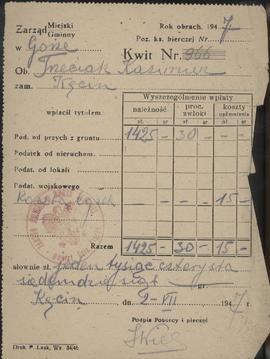 Miejski
Zarząd Gminny
Rok obrach. 1947
w
Poz. ks. bierczej Nr.
Kwit Nr. 966
Ob. Trzeciak Kazimierz
zam. Kęcin
wpłacił tytułem
Wyszczególnienie wpłaty
należność
proc. zwłoki
koszty upomnienia
zł. gr zł. gr zł. gr
Pod. od przych z grunt. 1425 - 30 -
Podatek od nieruchom.
Podat. od lokali
Podat. wojskowego
15 -
Razem 1425 - 30 - 15 -
słownie zł. jeden tysiąc czterysta
siedemdziesiąt
Kęcin dn. 2-VII 1947 r.
Podpis Poborcy i pieczęć